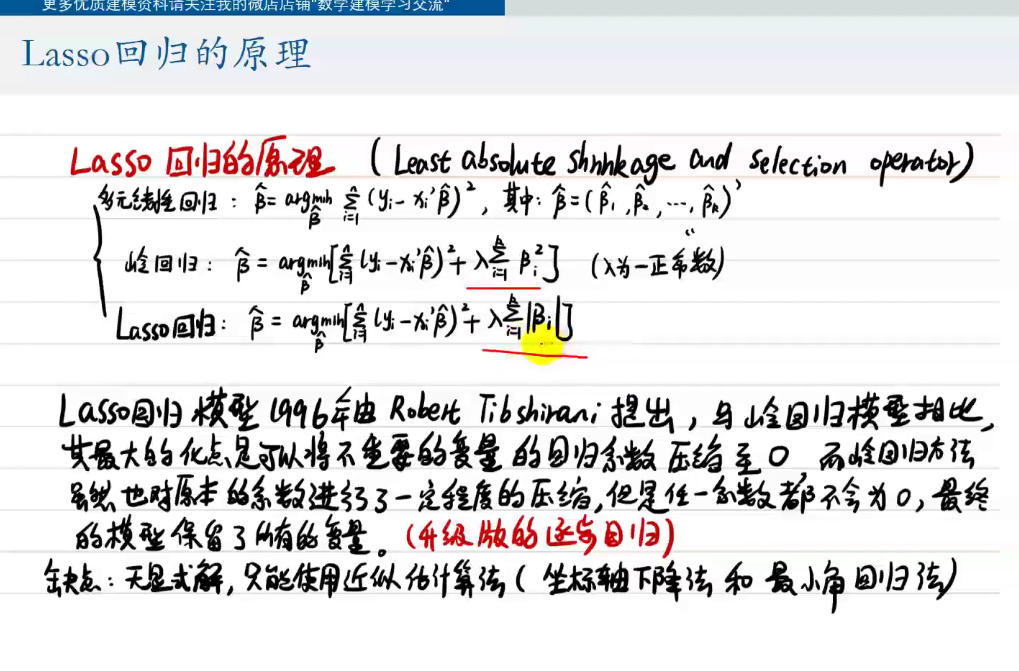 更多优质建模资料请关注我的微店店铺"数学建模学习交流"
Lasso回归的原理
Lasso 回归的原理 (Least absolute shrinkage and selection operator)
多元线性回归: β̂ = argmin_β̂ Σ_{i=1}^{n} (yᵢ - xᵢ'β̂)², 其中: β̂ = (β̂₁, β̂₂, ⋯, β̂ₖ)'
岭回归: β̂ = argmin_β̂ [Σ_{i=1}^{n} (yᵢ - xᵢ'β̂)² + λ Σ_{i=1}^{k} βᵢ²] (λ为一正常数)
Lasso回归: β̂ = argmin_β̂ [Σ_{i=1}^{n} (yᵢ - xᵢ'β̂)² + λ Σ_{i=1}^{k} |βᵢ|]
Lasso回归模型1996年由Robert Tibshirani提出,与岭回归模型相比,
其最大的优点是可以将不重要的变量的回归系数压缩至0,而岭回归方法
虽然也对原本的系数进行了一定程度的压缩,但是任一系数都不会为0,最终
的模型保留了所有的变量。(升级版的逐步回归)
缺点: 无显式解,只能使用近似估计算法(坐标轴下降法和最小角回归法)